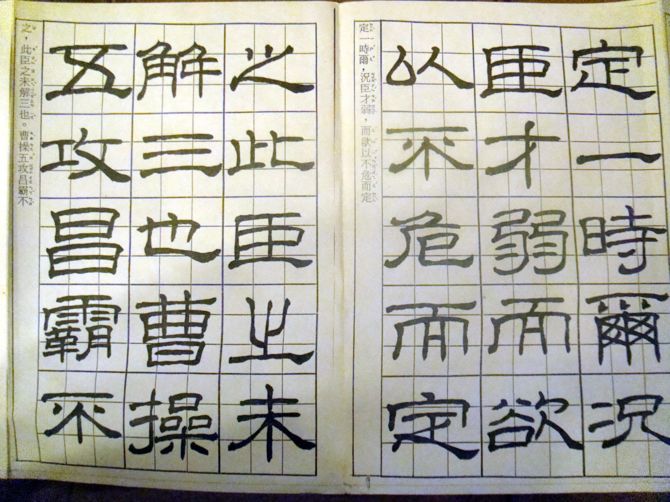 定一時爾況
臣才弱而欲
以不危而定
定一時爾，況臣才弱，而欲以不危而定
之此臣之未
解三也曹操
五攻昌霸不
之，此臣之未解三也。曹操五攻昌霸不